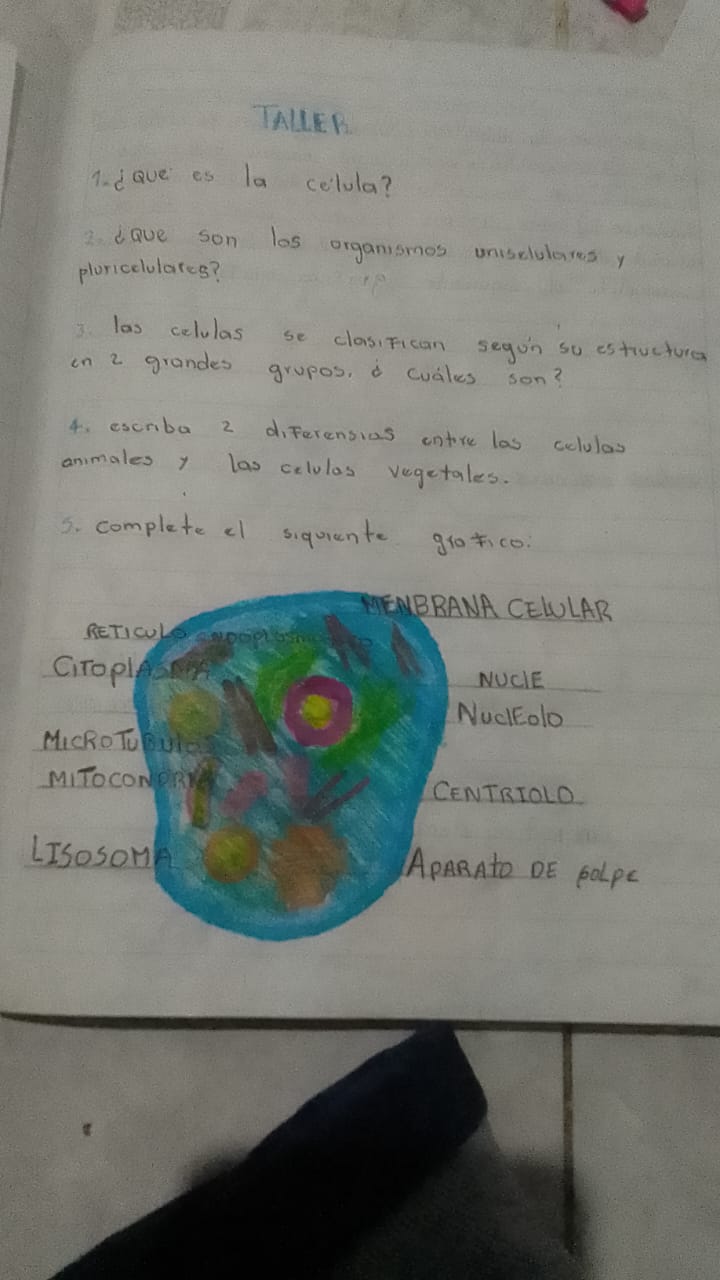 TALLER
1. ¿que es la celula?
2. ¿que son los organismos uniselulares y
pluricelulares?
3. las celulas se clasifican según su estructura
en 2 grandes grupos, ¿ cuáles son?
4. escriba 2 diferensias entre las celulas
animales y las celulas vegetales.
5. complete el siquiente grafico:
MENBRANA CELULAR
RETICULO
CitoplASMA
NUCLE
NuclEolo
MICROTUBULOS
MITOCONDRIA
CENTRIOLO
LISOSOMA
APARATO DE golpe